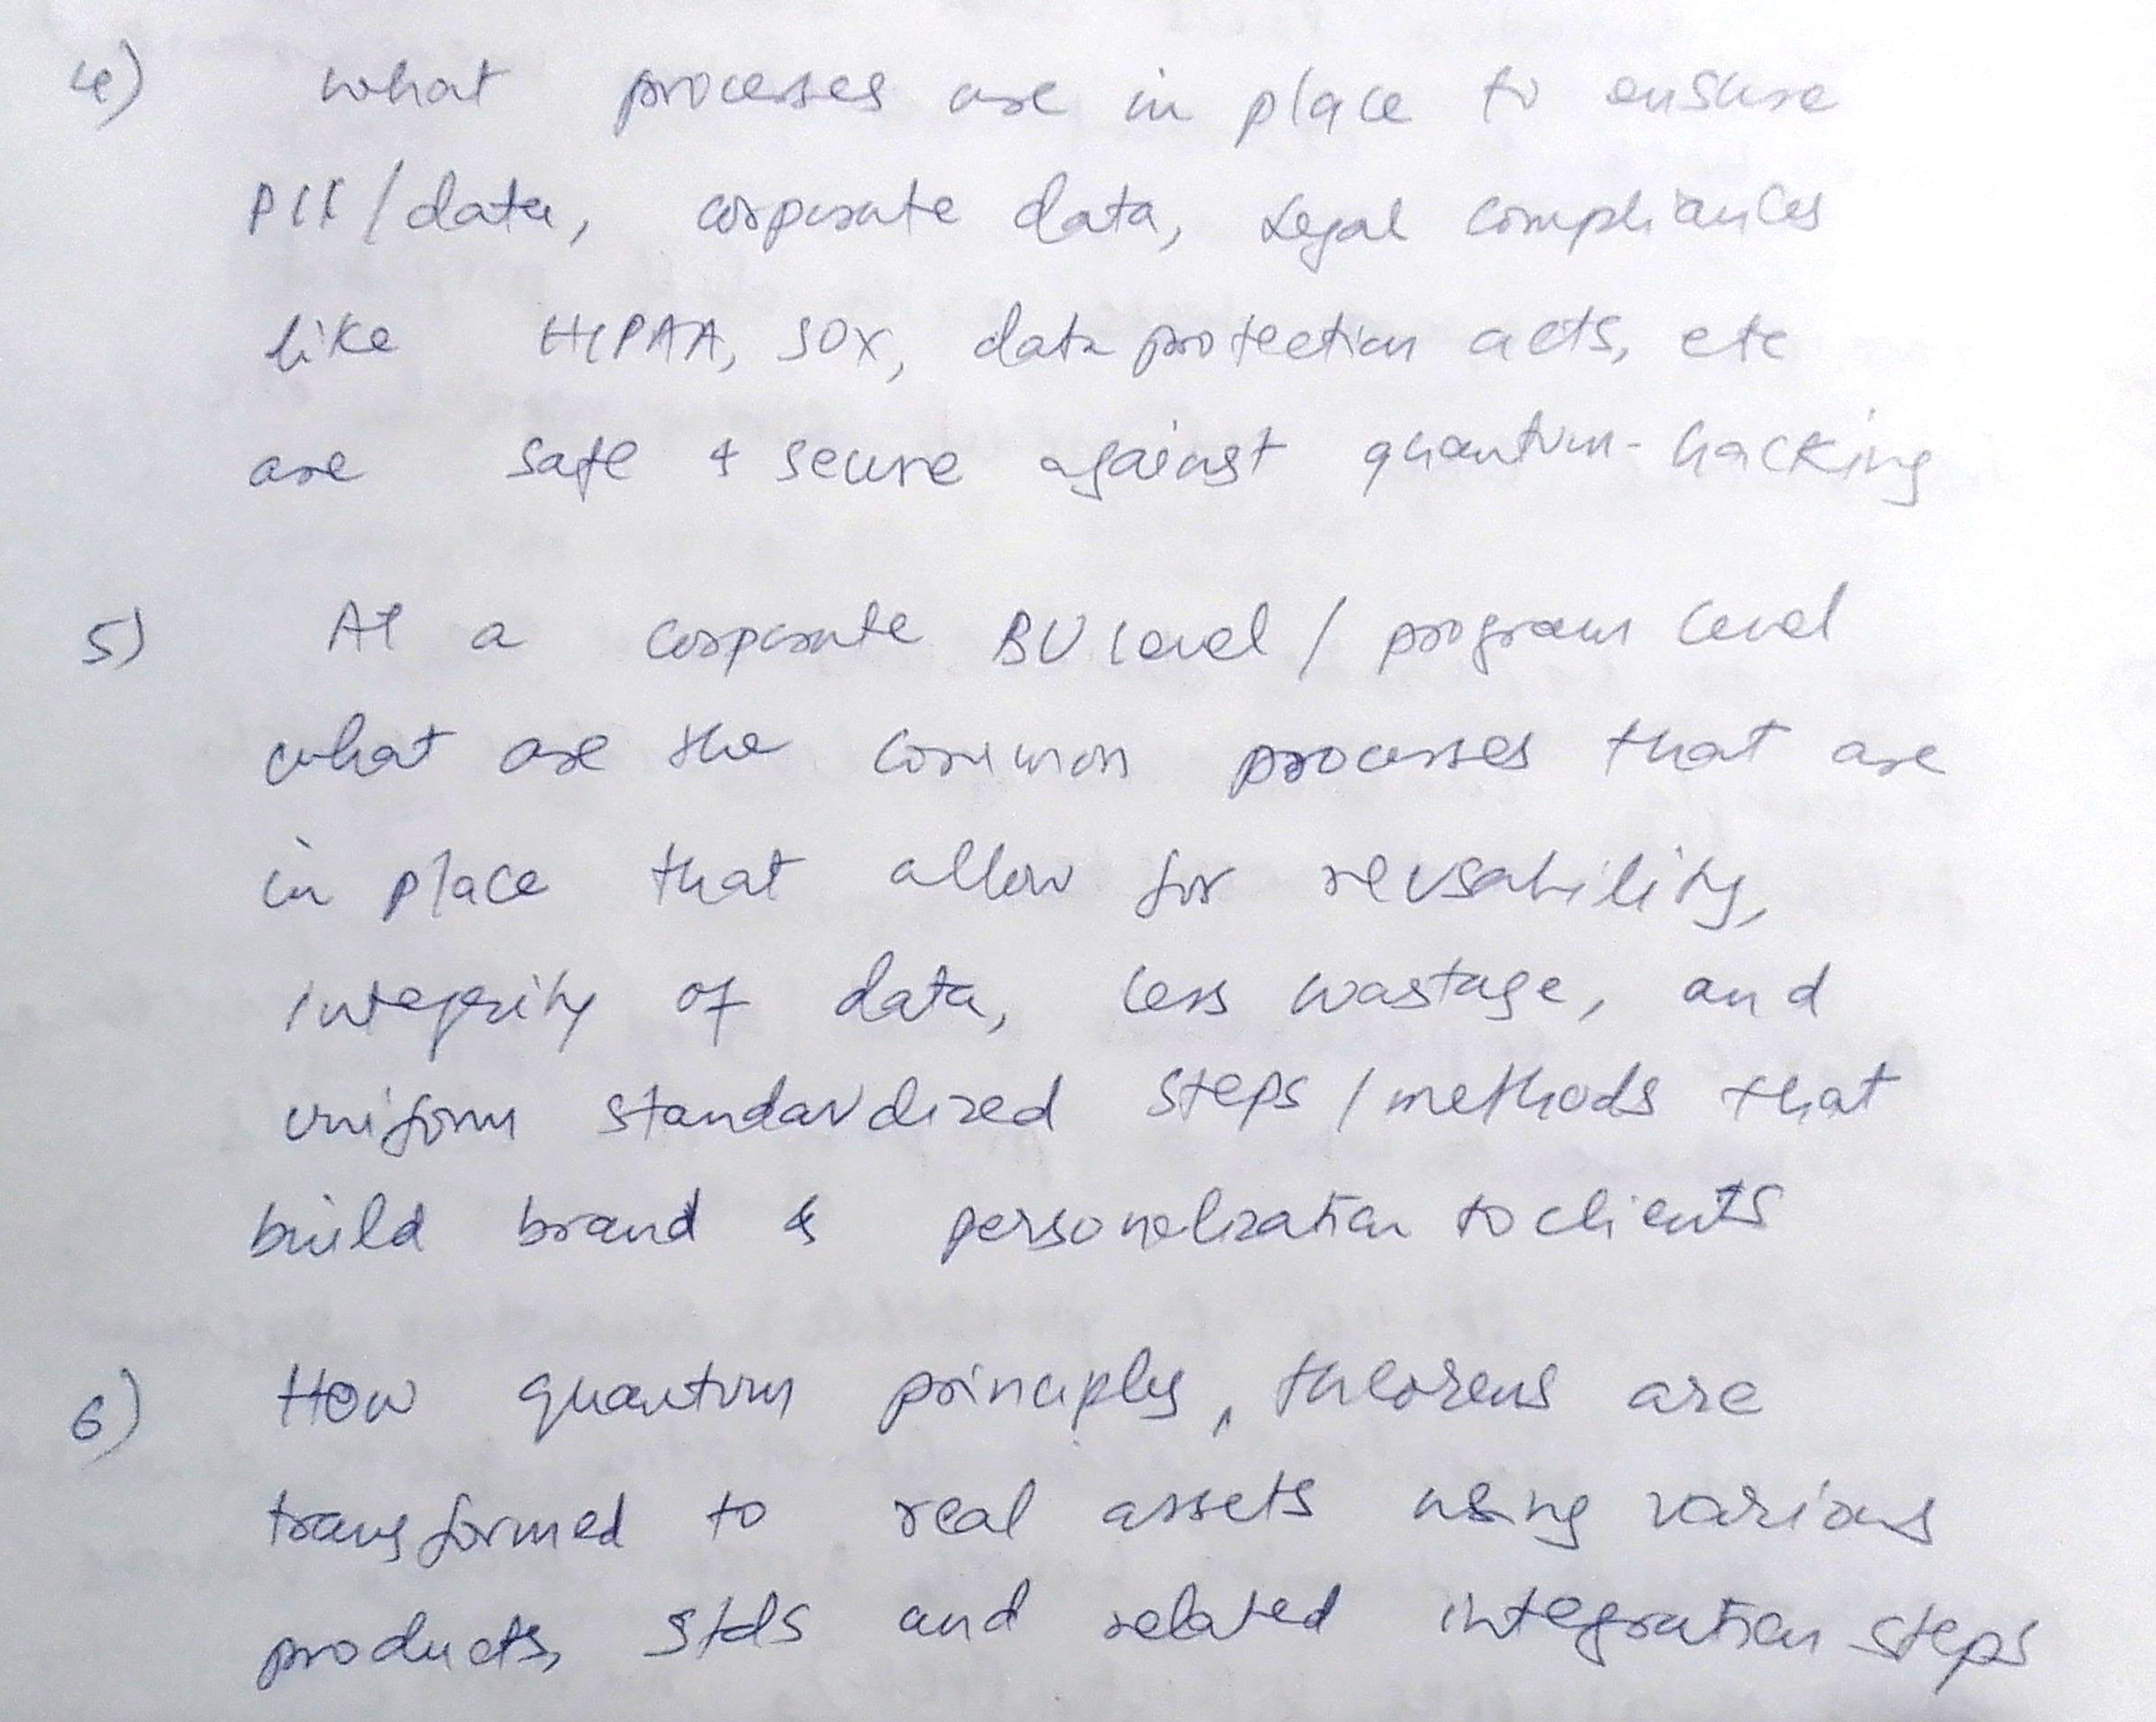 4) What processes are in place to ensure
PII/data, corporate data, Legal compliances
like HIPAA, SOX, data protection acts, etc
are safe & secure against quantum-hacking
5) At a corporate BU level / program level
what are the common processes that are
in place that allow for reusability,
integrity of data, less wastage, and
uniform standardized steps / methods that
build brand & personalization to clients
6) How quantum principles, theorems are
transformed to real assets using various
products, stds and related integration steps